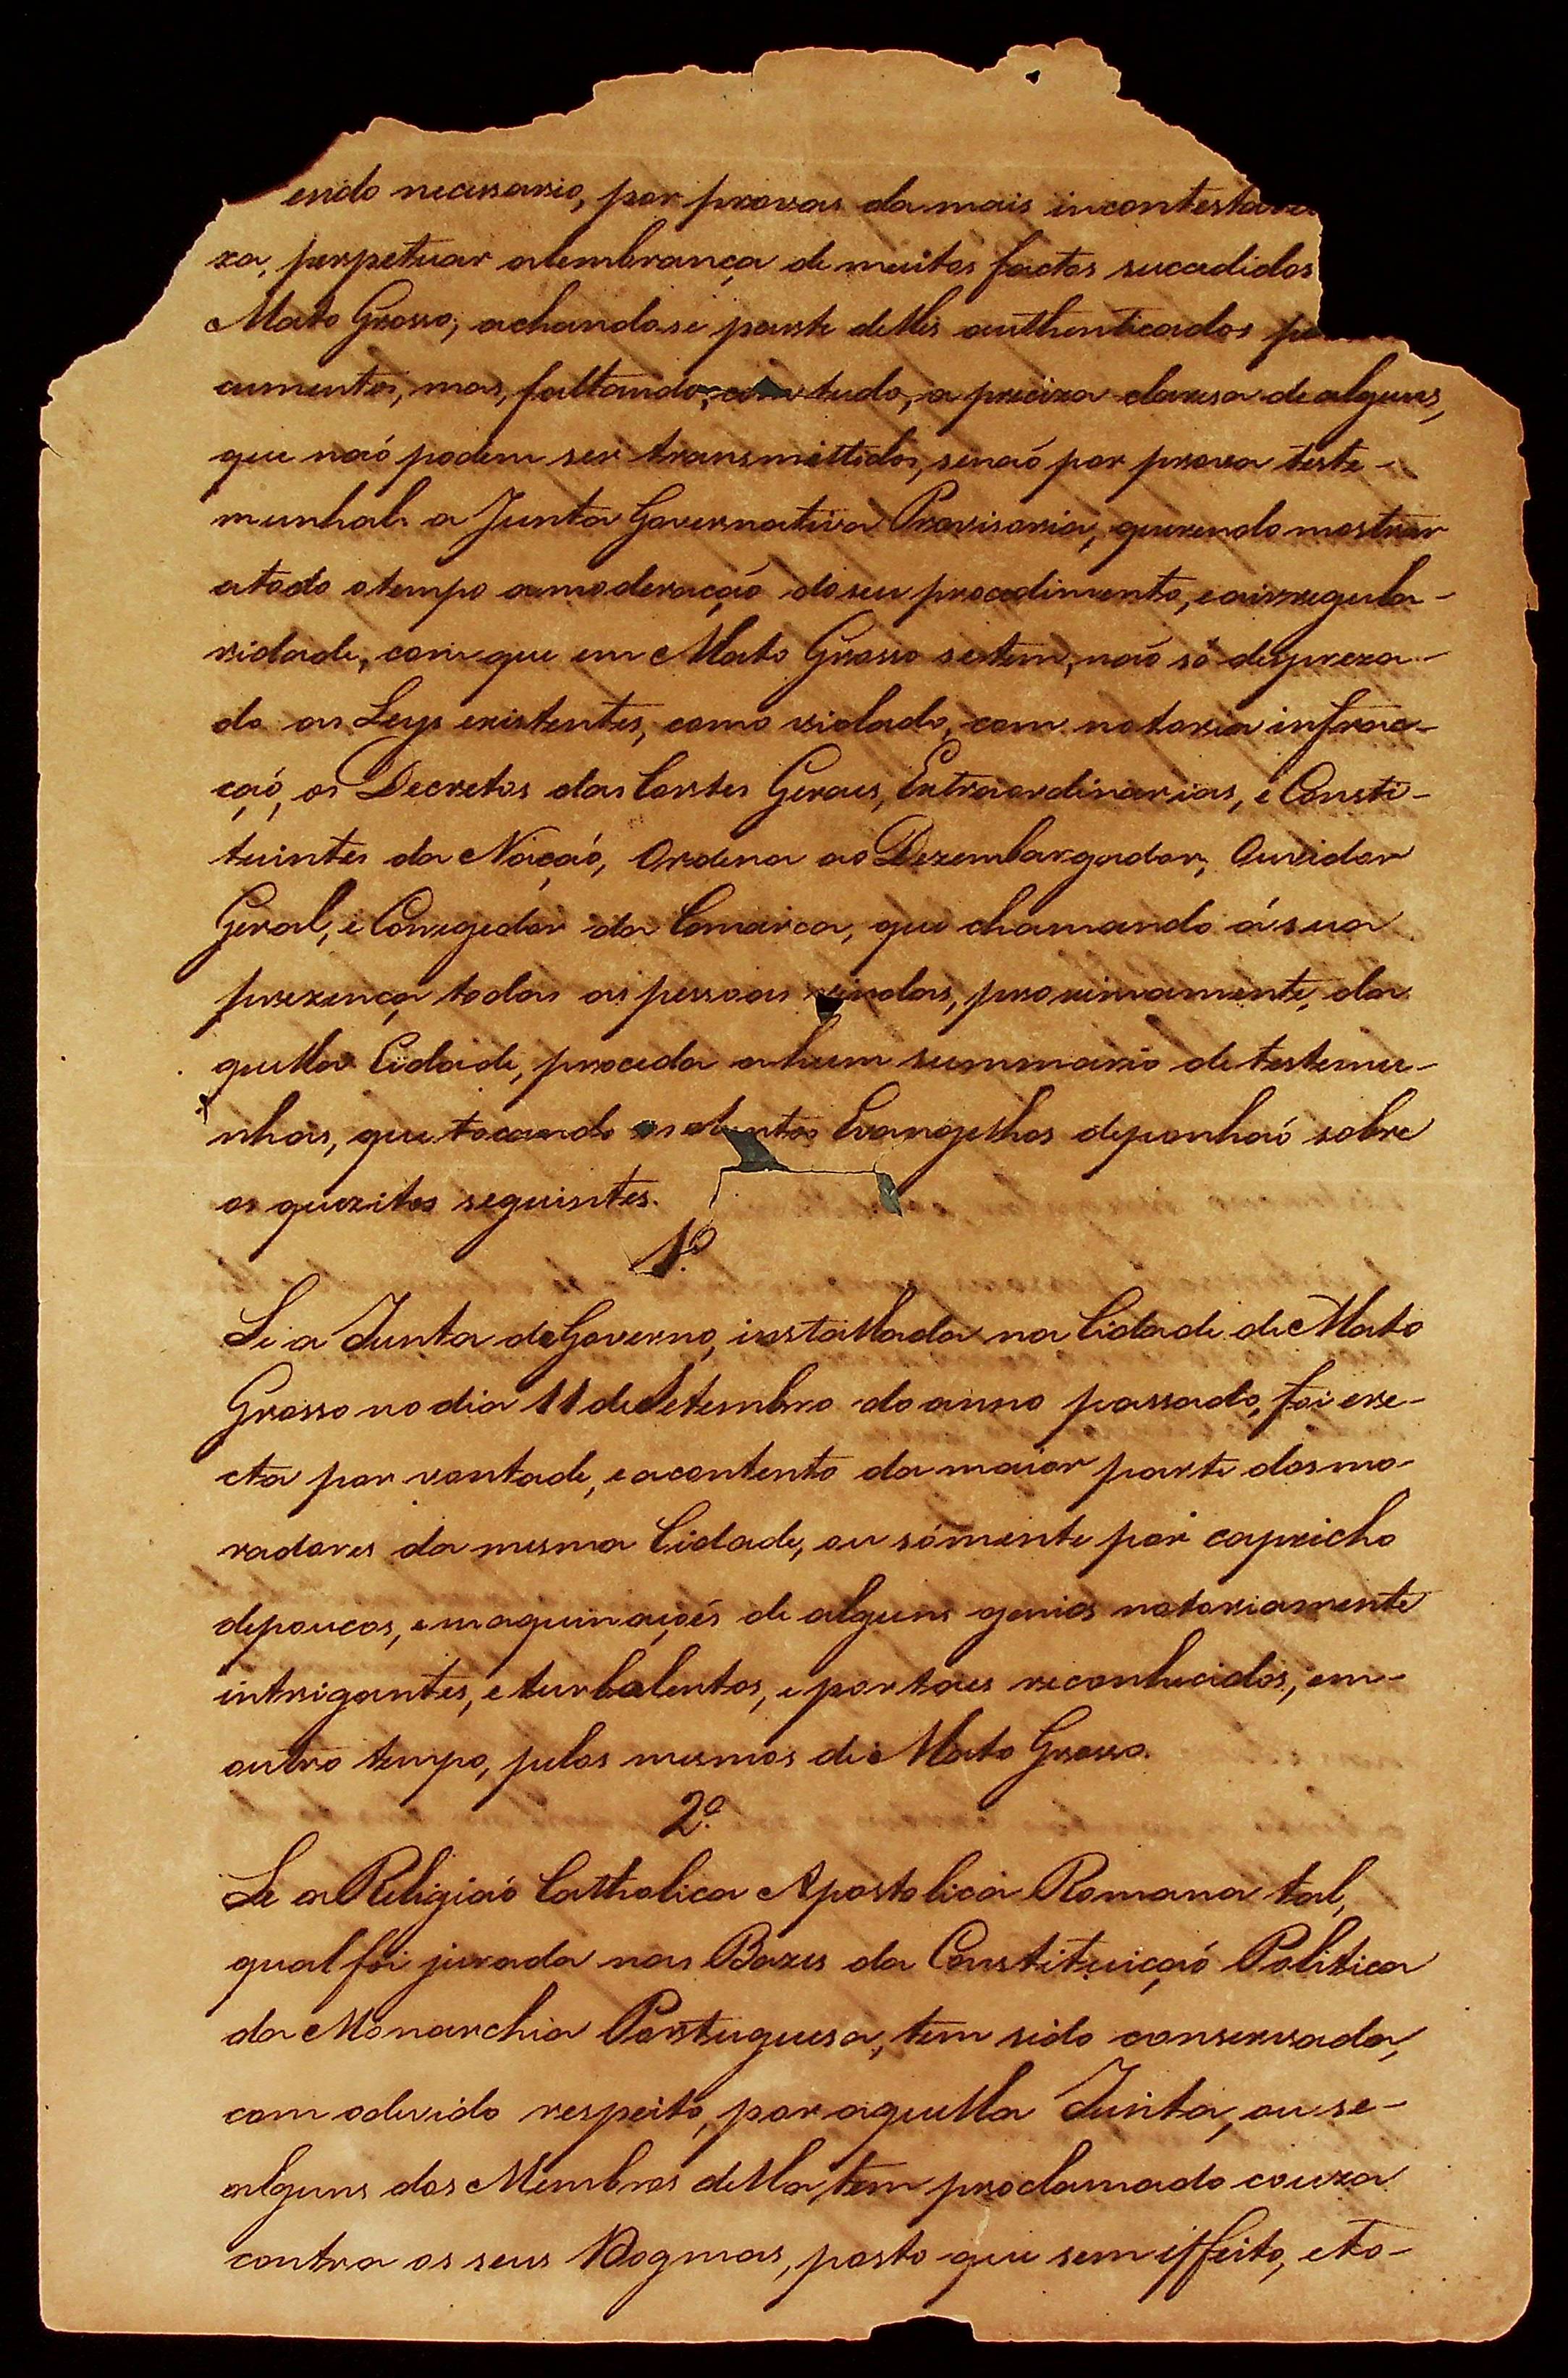 endo necessario, por provas da mais incontesta
za, perpetuar alembrança de muitos factos succedidos
Mato Grosso; achandose parte delles authenticados
cumentos, mas, faltando, com tudo, a preciza claresa de alguns,
que naõ podem ser transmittidos, senaõ por prova teste-
munhal: a Junta Governativa Provisoria, querendo mostrar
atodo otempo amoderaçaõ doseu procedimento, eairregula-
ridade, com que em Mato Grosso setem, naõ só despreza-
do as Leys existentes, como violado, com notoria infrac-
çaõ, os Decretos das Cortes Geraes, Extraordinarias, e Consti-
tuintes da Naçaõ, Ordena ao Dezembargador, Ouvidor
Geral, e Corregedor da Comarca, que chamando ásua
prezença todas as pessoas vindas, proximamente, da
quella Cidade, proceda ahum summario de testemu-
nhas, que tocando os Santos Evangelhos deponhaõ sobre
os quezitos seguintes.
1.º
Se a Junta deGoverno, installada na Cidade de Mato
Grosso no dia 11 deSetembro do anno passado, foi ere-
cta por vontade, eacontento da maior parte dosmo-
radores da mesma Cidade, ou sómente por capricho
depoucos, emaquinaçoẽs de alguns genios notoriamente
intrigantes, e turbalentos, e por taes reconhecidos, em-
outro tempo, pelos mesmos de Mato Grosso.
2.º
Se a Religiaõ Catholica Apostolica Romana tal,
qual foi jurada nas Bazes da Constituiçaõ Politica
da Monarchia Portuguesa, tem sido conservada,
com odevido respeito, por aquella Junta, ou se-
alguns dos Membros della, tem proclamado couza
contra os seus Dogmas, posto que sem effeito, eto-